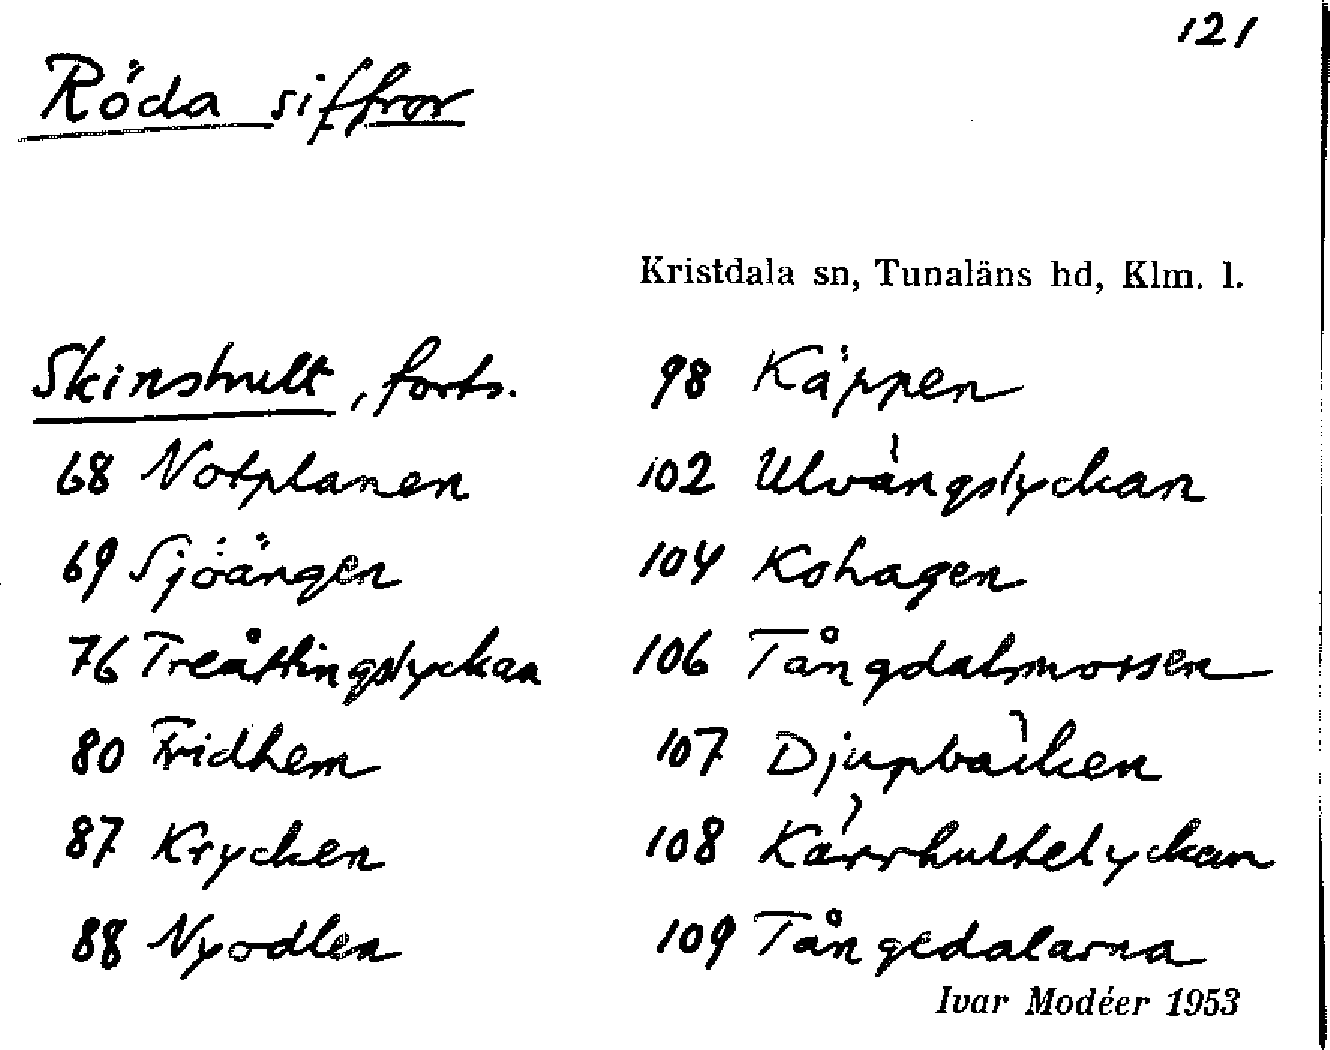 121
Röda siffror
Kristdala sn, Tunaläns hd, Klm. l.
Skinshult, forts.
68 Notplanen
69 Sjöängen
76 Treåttingslyckan
80 Fridhem
87 Krycken
88 Nyodlen
98 Käppen
102 Ulvängslyckan
104 Kohagen
106 Tångdalsmossen
107 Djupbäcken
108 Kärrhultelyckan
109 Tångedalarna
Ivar Modéer 1953